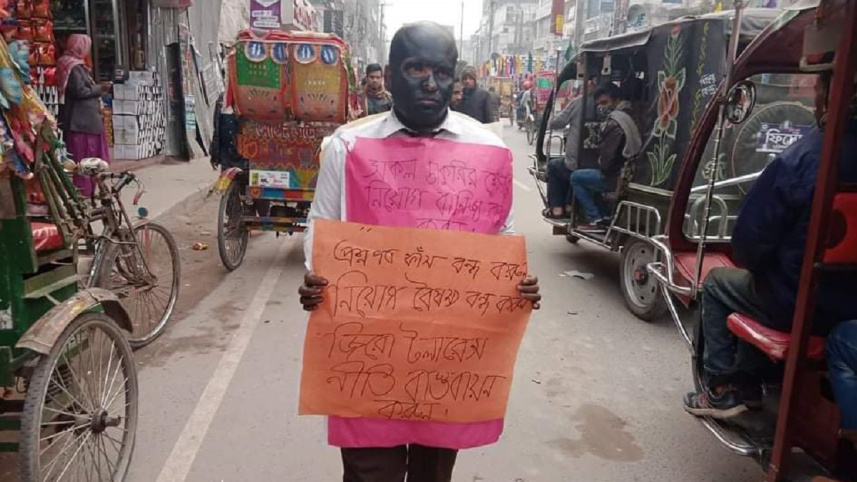 সকল চাকুরির ক্ষেত্রে
নিয়োগ বানিজ্য বন্ধ
করুন
প্রশ্নপত্র ফাঁস বন্ধ করুন
নিয়োগ বৈষম্য বন্ধ করুন
জিরো টলারেন্স
নীতি বাস্তবায়ন
করুন